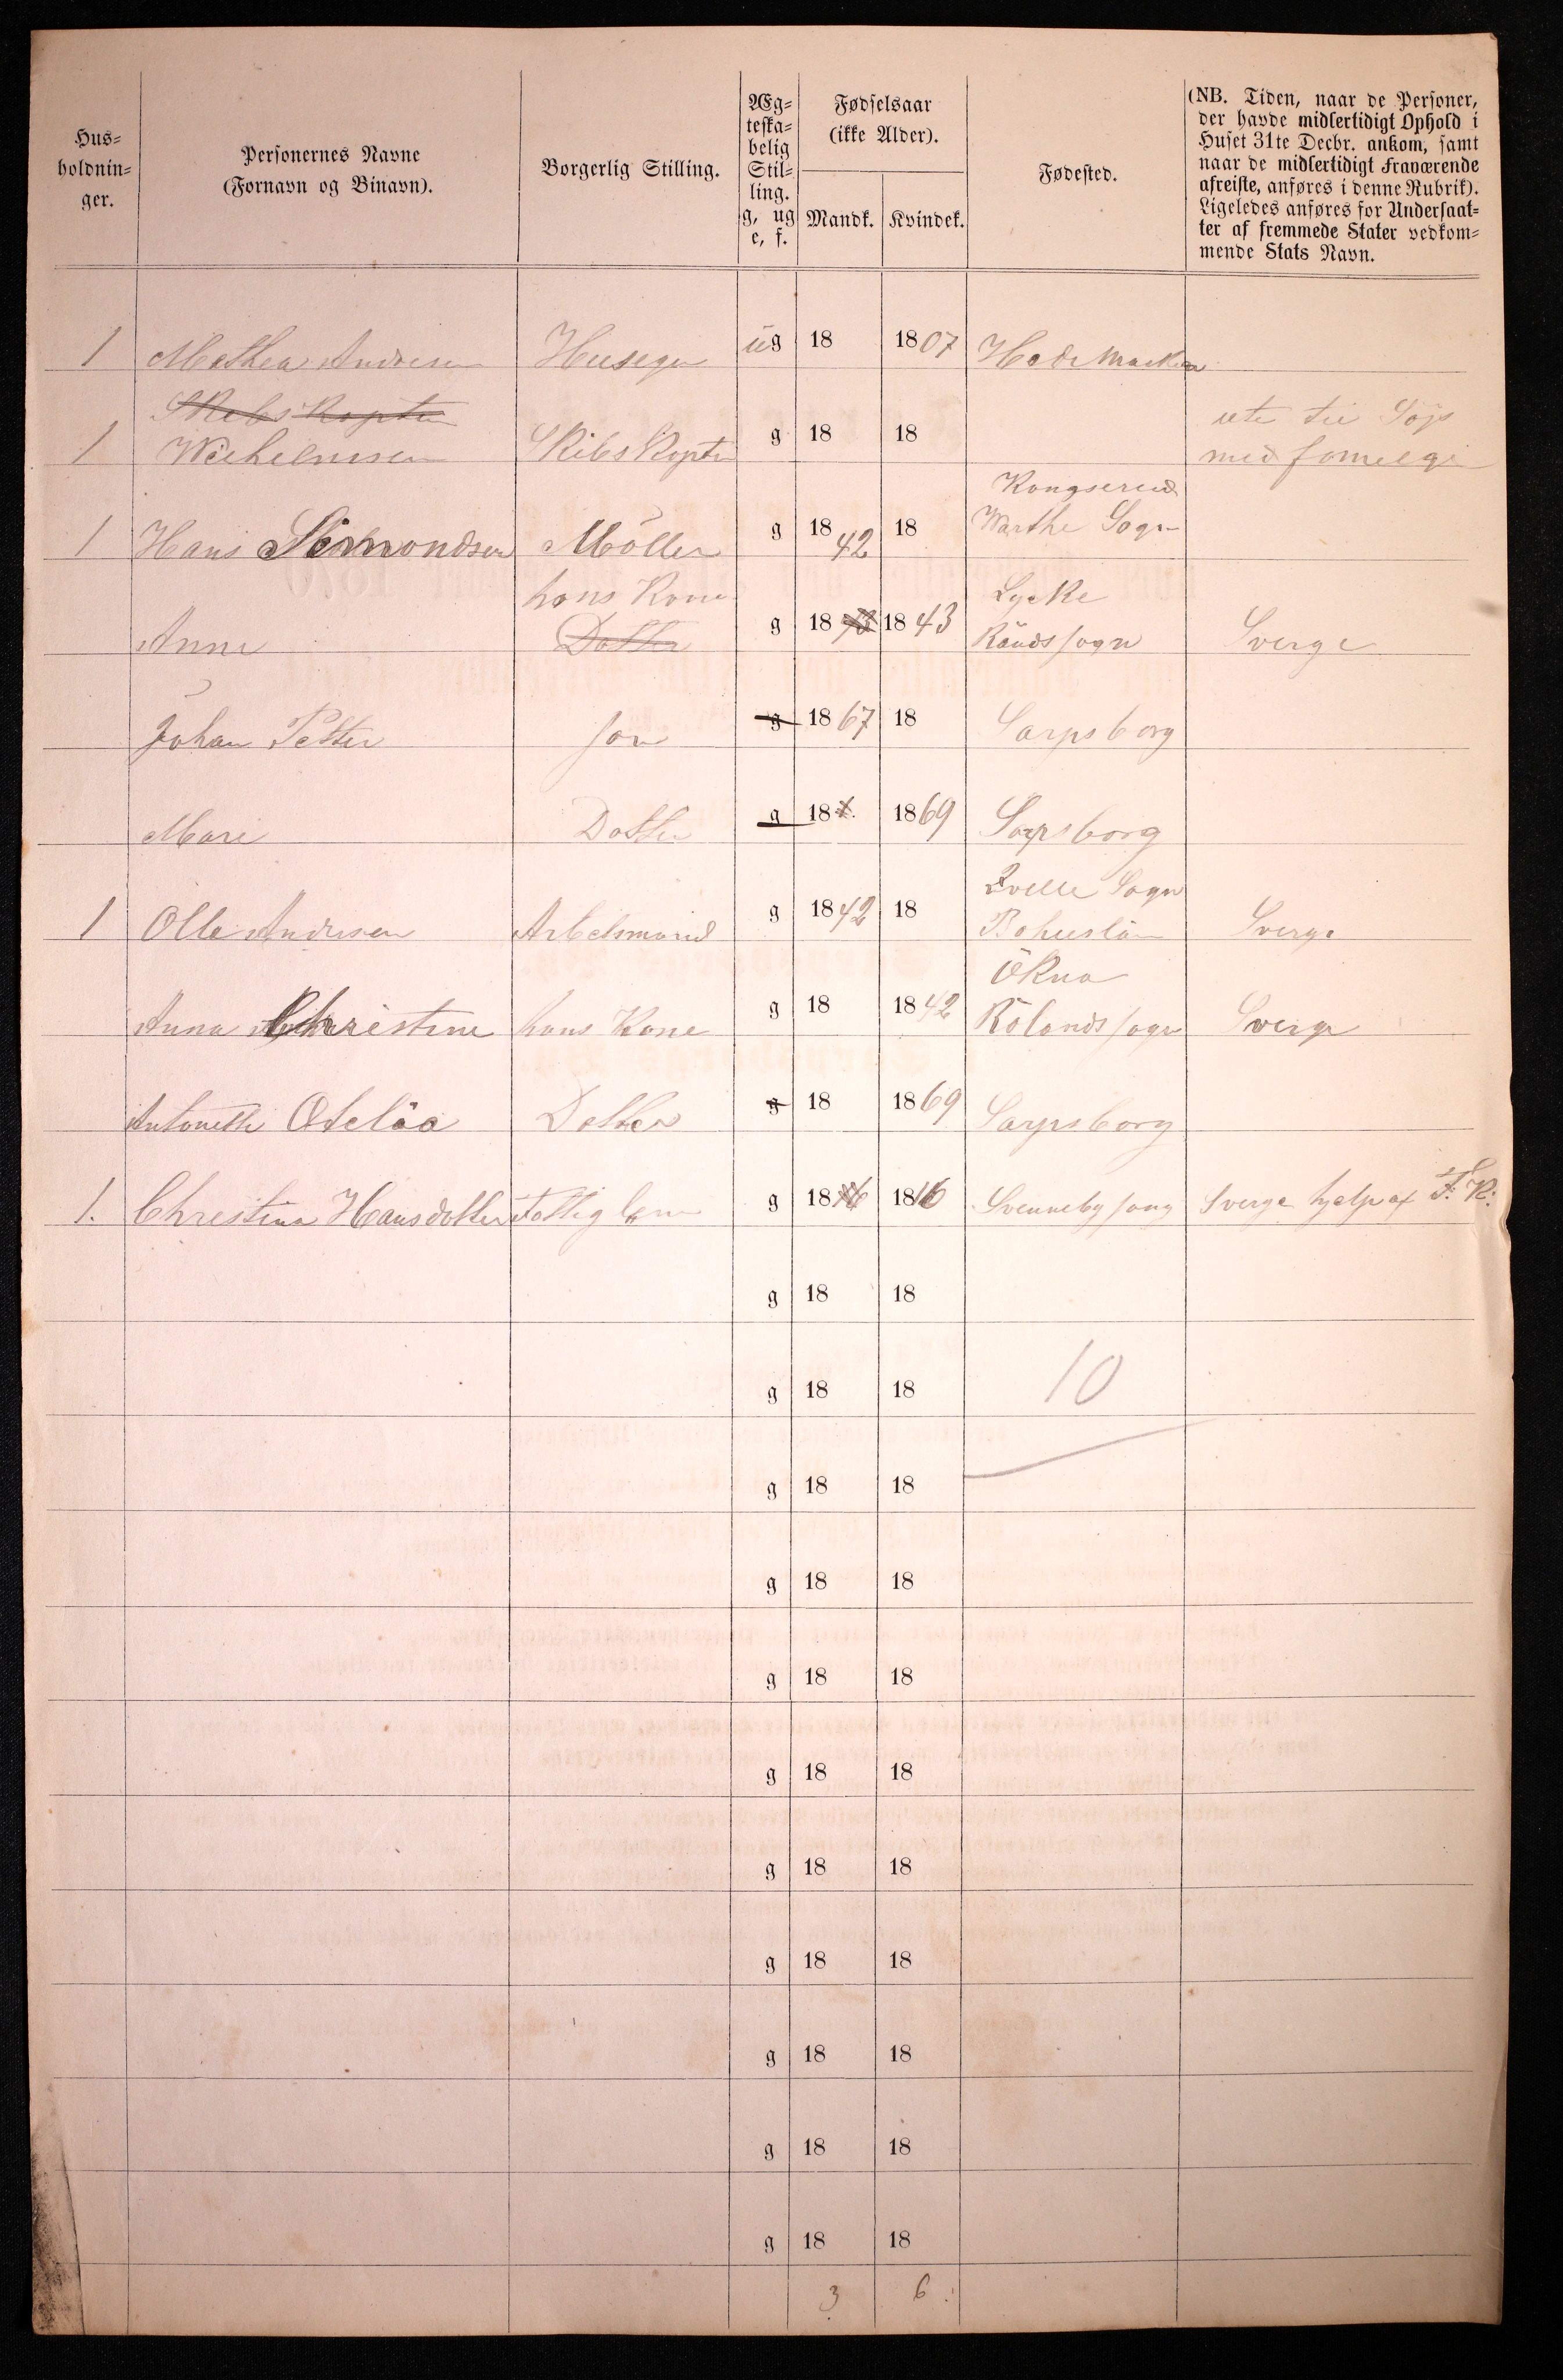 Hus=
holdnin=
ger.
Personernes Navne
(Fornavn og Binavn).
Borgerlig Stilling.
Æg=
teska=
belig
Stil=
ling.
g, ug
e, f.
Fødselsaar
(ikke Alder).
Mandk. Kvindek.
Fødested.
(NB. Tiden, naar de Personer,
der havde midlertidigt Ophold i
Huset 31te Decbr. ankom, samt
naar de midlertidigt fraværende
afreiste, anføres i denne Rubrik).
Ligeledes anføres for Undersaat=
ter af fremmede Stater vedkom=
mende Stats Navn.
1 Mathea Andersen Huseger ug 18 1807 Hedemarken
Skibskapten
ute til Søjs
1 Wilhelmsen Skibskapten g 18 18 med familge
Kongserud
1 Hans Simondsen Møller g 1842 18 Warthe Sogn
hans Kone Lycke
Anne Datter g 18 1843 Rands sogn Sverge
Johan Petter søn g 1867 18 Sarpsborg
Mari Datter g 18 1869 Sarpsborg
Qville Sogn
1 Olle Andersen Arbeismand g 1842 18 Bohuslän Sverge
Økna
Anna Christine hans Kone g 18 1842 Rölands sogn Sverge
Antonette Otelia Datter g 18 1869 Sarpsborg
1. Christina Hansdotter Fattiglem g 18 1816 Svenneby song Sverge hjelp af F. K.
g 18 18
g 18 18 10
g 18 18
g 18 18
g 18 18
g 18 18
g 18 18
g 18 18
g 18 18
g 18 18
g 18 18
3 6